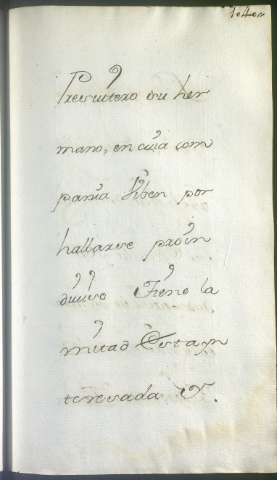 Presvitero su her
mano, en cuia com
pania viben por
hallarse proin
diviso Tiene la
mitad Esta yn
teresada Y.